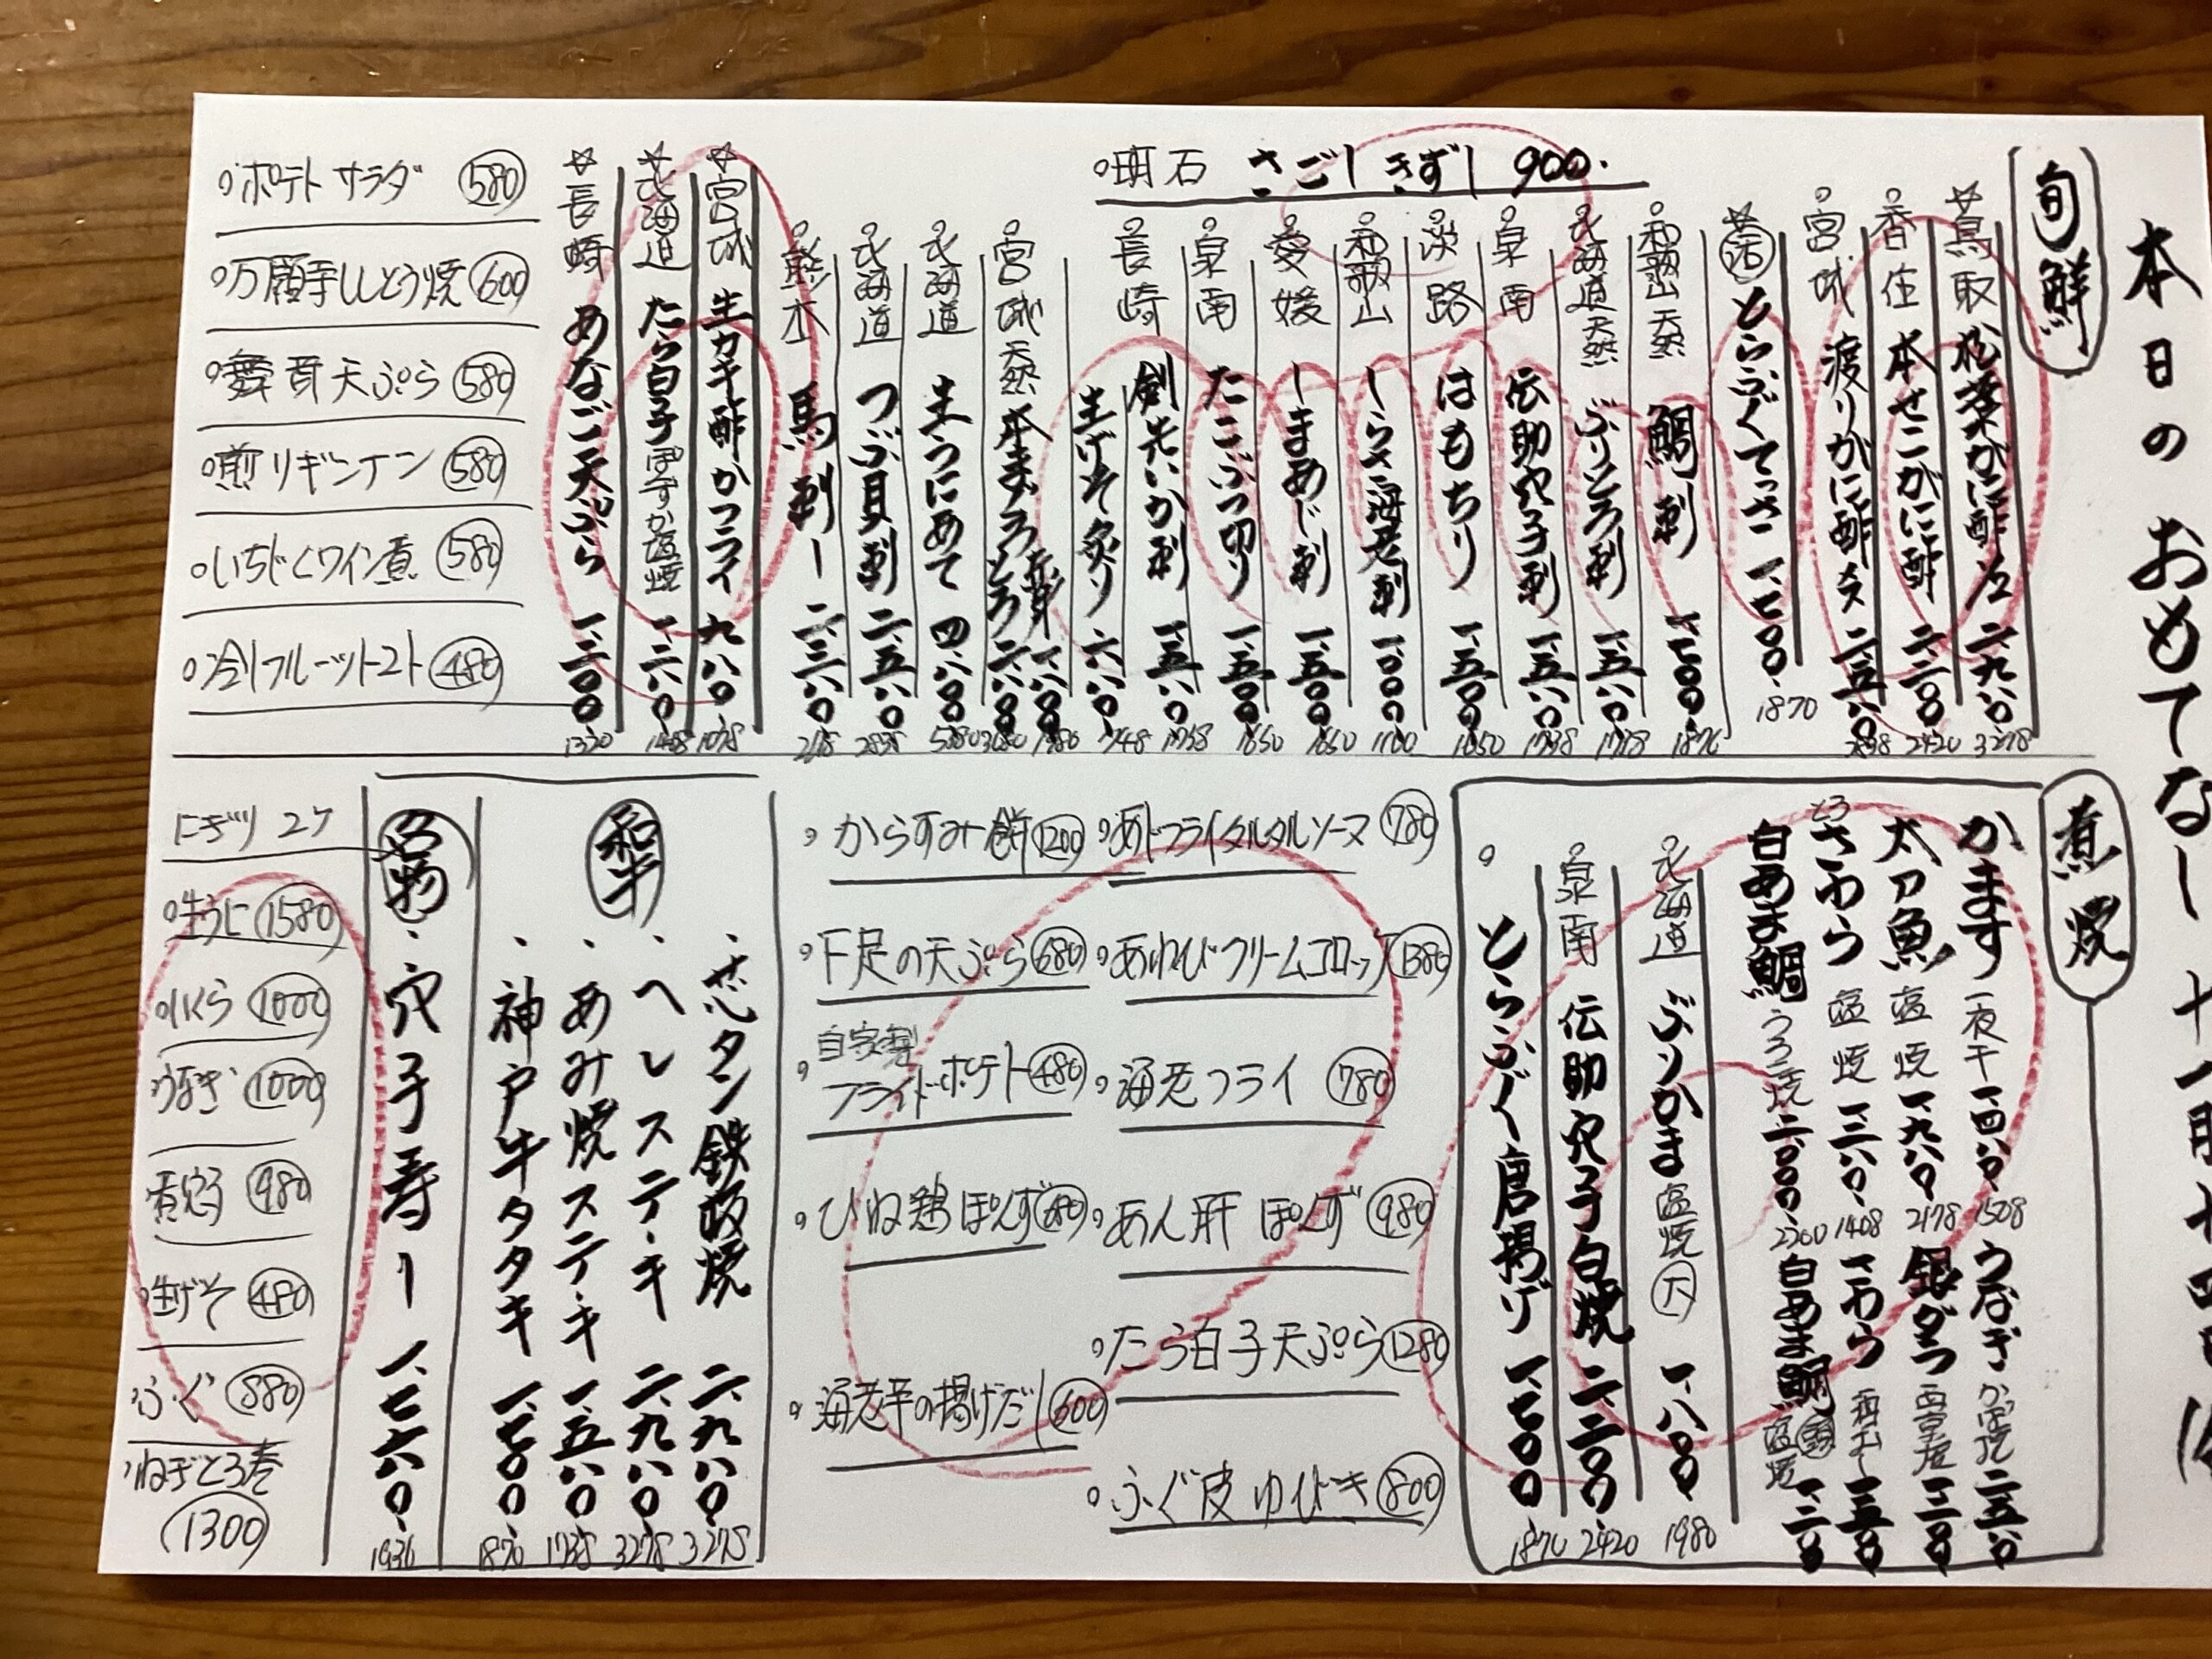 本日のおもてなし
旬鮮
鳥取 松葉がに酢 二、九八〇、 3278
香住 本せこがに酢 二、二〇〇、 2420
宮城 渡りがに酢 二、五八〇、
活 とらふぐてっさ 一、七〇〇、 1870
和歌山 天然 鯛刺 一、七〇〇、 1870
北海道 天然 ぶりとろ刺 一、五八〇、
泉南 伝助穴子刺 一、五八〇、 1738
淡路 はもちり 一、五〇〇、 1650
和歌山 しらさ海老刺 一、〇〇〇、 1100
愛媛 しまあじ刺 一、五〇〇、 1650
泉南 たこぶつ切り 一、五〇〇、 1650
長崎 剣先いか刺 一、五八〇、
生げそ炙り 六八〇、 748
明石 さごしきずし 900.
宮城 天然 本まぐろ 赤身 一、八〇〇、
とろ 二、八〇〇、 3080
北海道 生うにあて 四、八〇〇、
北海道 つぶ貝刺 二、五八〇、 2838
熊本 馬刺し
宮城 生カキ酢かフライ 九八〇、 1078
北海道 たら白子ぽんずか塩焼 一、二八〇、 1408
長崎 あなご天ぷら 一、二〇〇、 1320
ポテトサラダ 580
万願寺ししとう焼 600
舞茸天ぷら 580
煎りギンナン 580
いちじくワイン煮 580
冷しフルーツトマト 480
煮焼
かます 一夜干
太刀魚 塩焼 一、九八〇、 2178
とろさわら 塩焼 1408
白あま鯛 うろこ焼 二、〇〇〇、 2200
うなぎ かば焼 二、五八〇
銀だら 西京焼
さわら
白あま鯛 頭 塩焼
北海道 ぶりかま 塩焼 大 一、八〇〇、 1980
泉南 伝助穴子白焼 二、二〇〇、 2420
とらふぐ唐揚げ 一、七〇〇 1870
からすみ餅 1200
あじフライタルタルソース 780
下足の天ぷら 680
あわびクリームコロッケ 1380
自家製フライドポテト 480
海老フライ 780
ひね鶏ぽんず
あん肝ぽんず 980
たら白子天ぷら 1280
海老芋の揚げだし 600
ふぐ皮ゆびき 800
和牛
芯タン鉄板焼 二、九八〇、 3278
ヘレステーキ 二、九八〇、 3278
あみ焼ステーキ 一、五八〇、 1738
神戸牛タタキ 一、七〇〇、 1870
名物
穴子寿し 一、七六〇、 1936
にぎり2ケ
生うに 1580
いくら 1000
うなぎ 1000
煮穴子 980
生げそ 480
ふぐ 880
ねぎとろ巻 1300